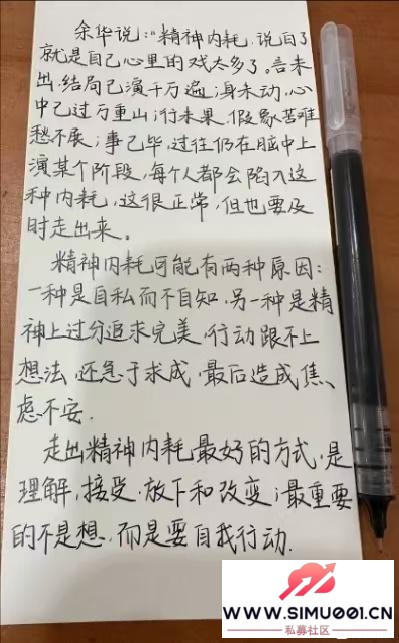 余华说："精神内耗,说白了
就是自己心里的戏太多了。言未
出,结局已演千万遍;身未动,心
中已过万重山;行未果,假象苦难
愁不展;事已毕,过往仍在脑中上
演某个阶段,每个人都会陷入这
种内耗,这很正常,但也要及
时走出来。
精神内耗可能有两种原因:
一种是自私而不自知,另一种是精
神上过分追求完美,行动跟不上
想法,还急于求成,最后造成焦
虑不安.
走出精神内耗最好的方式,是
理解,接受,放下和改变;最重要
的不是想,而是要自我行动.
WWW.SIMU001.CN
私募社区